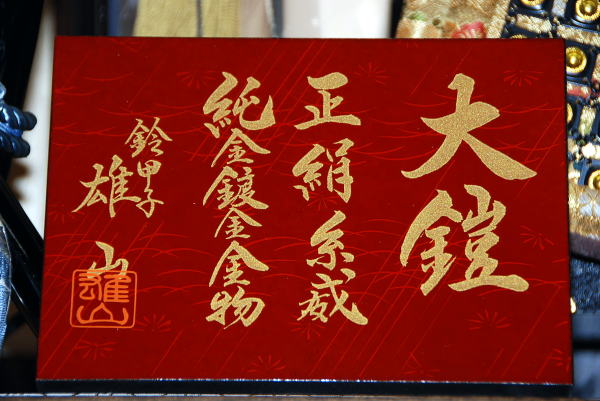 大鎧
正絹糸威
純金鍍金金物
鈴甲子
雄山
雄山